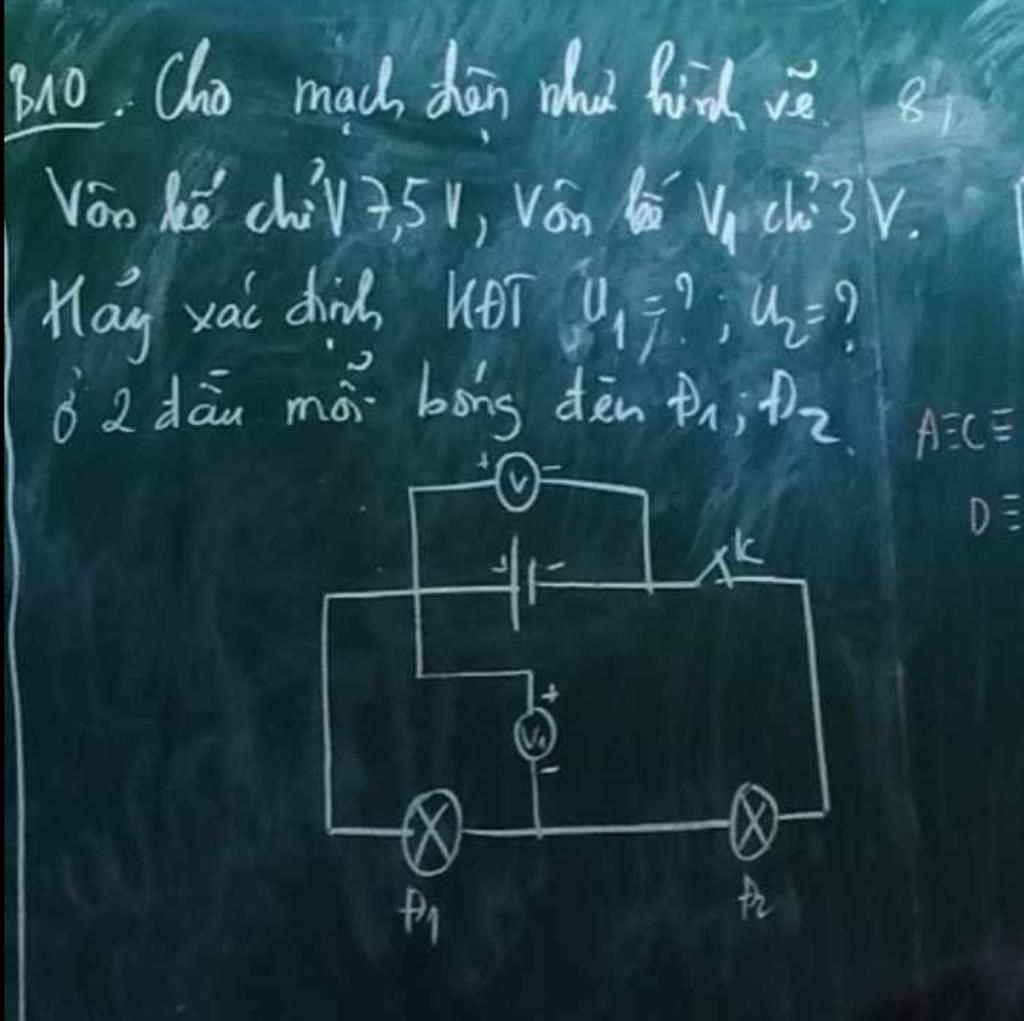 B10. Cho mạch điện như hình vẽ. 8,
Vôn kế chỉ V 7,5V, Vôn kế V1 chỉ 3V.
Hãy xác định HĐT U1=?; U2=?
ở 2 đầu mỗi bóng đèn Đ1; Đ2.
A≡C≡
D≡
+ V -
+ - K
+
V1
-
Đ1 Đ2